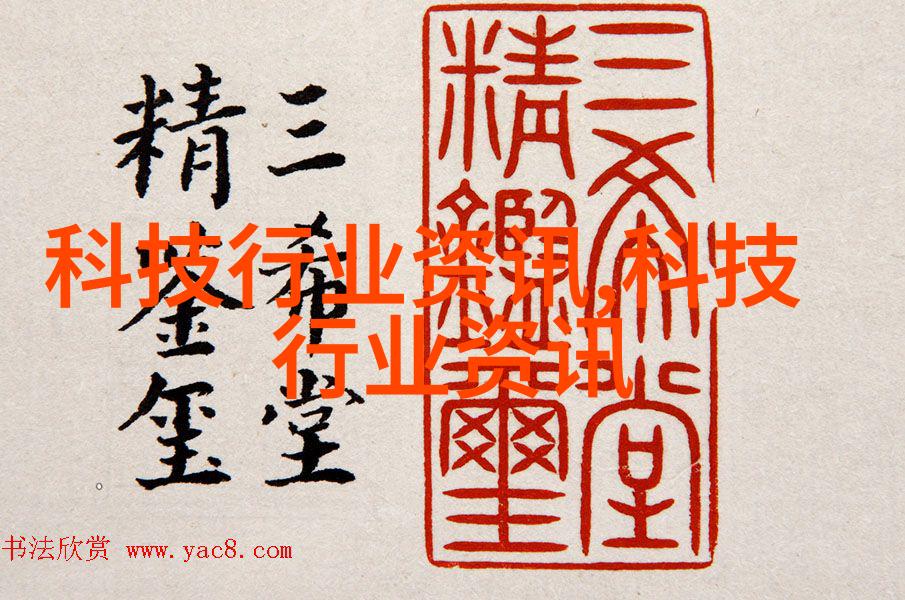 三希堂
精鉴玺
三希堂
精鑑璽
科技行业资讯,科技
行业资讯
书法欣赏 www.yac8.com